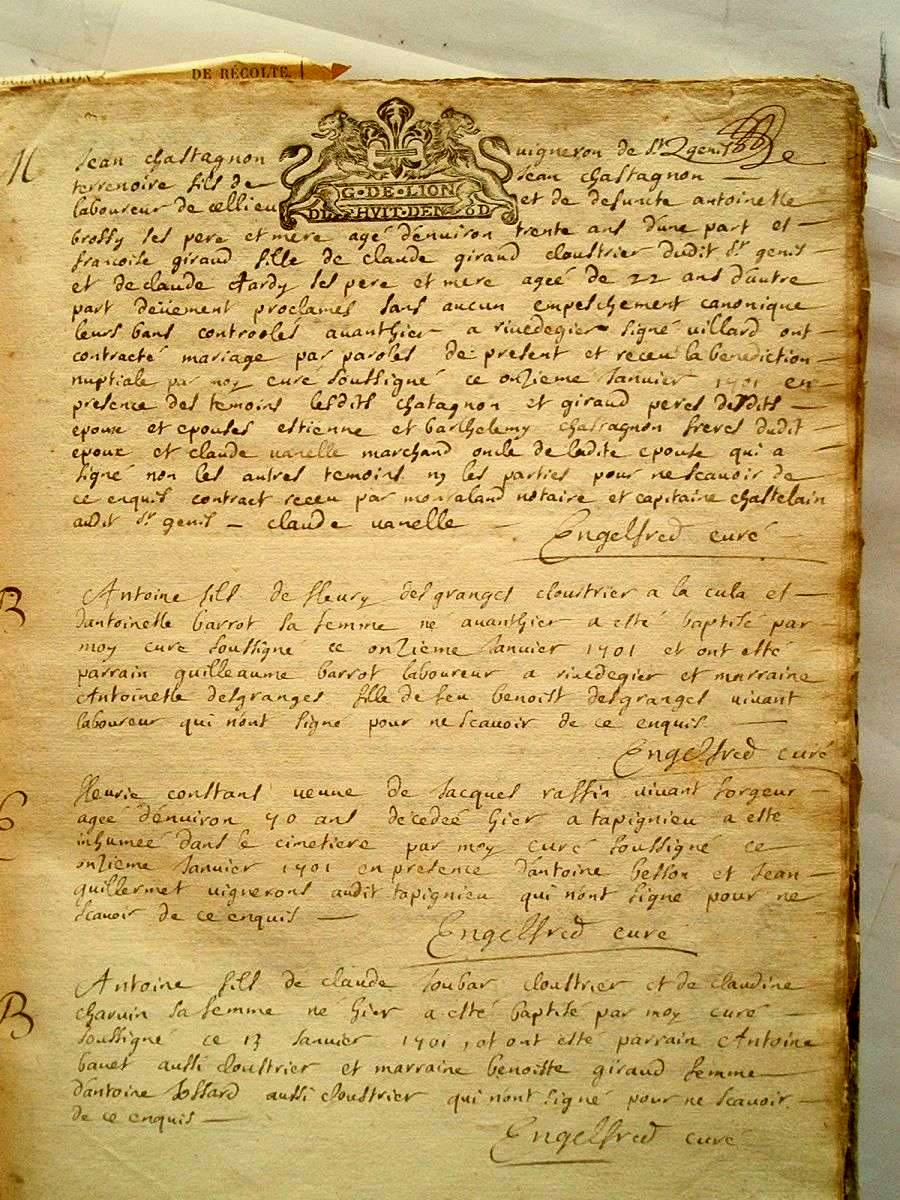 DE RÉCOLTE.
M
Jean chastagnon vigneron de st genis
terrenoire fils de Jean chastagnon
G·DE·LION
laboureur de cellieu et de defunte antoinette
brossy ses pere et mere agé d'enuiron trente ans d'une part et
francoise giraud fille de claude giraud cloustrier dudit st genis
et de claude tardy ses pere et mere ageé de 22 ans d'autre
part deüement proclames sans aucun empeschement canonique
leurs bans controoles auanthier a riuedegier signé uillard ont
contracté mariage par paroles de present et receu la benediction
nuptiale par moy curé soussigné ce onzieme Januier 1701 en
presence des temoins lesdits chatagnon et giraud peres desdits
epoux et epouses estienne et barthelemy chastagnon freres dudit
epoux et claude uanelle marchand oncle de ladite epouse qui a
signé non les autres temoins ny les parties pour ne scauoir de
ce enquis contract receu par monraland notaire et capitaine chastelain
audit st genis claude uanelle
Engelfred curé
B
Antoine fils de fleury desgranges cloustrier a la cula et
d'antoinette barrot sa femme né auanthier a esté baptisé par
moy curé soussigné ce onzieme Januier 1701 et ont esté
parrain guilleaume barrot laboureur a riuedegier et marraine
Antoinette desgranges fille de feu benoist desgranges uiuant
laboureur qui n'ont signé pour ne scauoir de ce enquis
Engelfred curé
S
fleurie constant ueuue de Jacques raffin uiuant forgeur
agee d'enuiron 70 ans decedeé hier a tapignieu a esté
inhumeé dans le cimetiere par moy curé soussigné ce
onzieme Januier 1701 en presence d'antoine besson et Jean
guillermet uignerons audit tapignieu qui n'ont signé pour ne
scauoir de ce enquis
Engelfred curé
B
Antoine fils de claude Joubar cloustrier et de claudine
charuin sa femme né hier a esté baptisé par moy curé
soussigne ce 13 Januier 1701, et ont esté parrain Antoine
bauet aussi cloustrier et marraine benoiste giraud femme
d'antoine aussi cloustrier qui n'ont signé pour ne scauoir
de ce enquis
Engelfred curé